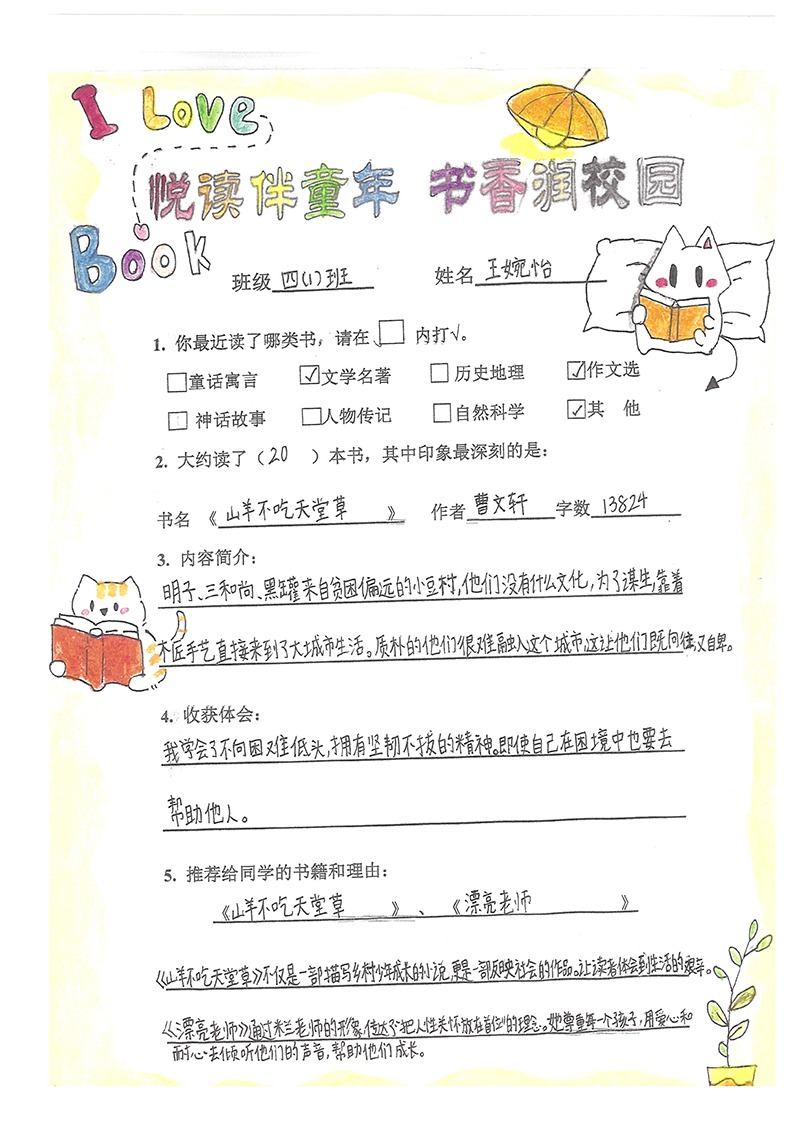 I LOVE
悦读伴童年 书香润校园
Book
班级 四(1)班 姓名 王婉怡
1. 你最近读了哪类书，请在□内打√。
□童话寓言 ☑文学名著 □历史地理 ☑作文选
□神话故事 □人物传记 □自然科学 ☑其 他
2. 大约读了（20 ）本书，其中印象最深刻的是：
书名《山羊不吃天堂草 》 作者 曹文轩 字数 13824
3. 内容简介：
明子、三和尚、黑罐来自贫困偏远的小豆村，他们没有什么文化，为了谋生，靠着
木匠手艺直接来到了大城市生活。质朴的他们很难融入这个城市，这让他们既向往，又自卑。
4. 收获体会：
我学会了不向困难低头，拥有坚韧不拔的精神。即使自己在困境中也要去
帮助他人。
5. 推荐给同学的书籍和理由：
《山羊不吃天堂草 》、《漂亮老师 》
《山羊不吃天堂草》不仅是一部描写乡村少年成长的小说，更是一部反映社会的作品。让读者体会到生活的艰辛。
《漂亮老师》通过米兰老师的形象，传达了"把人性关怀放在首位"的理念。她尊重每一个孩子，用爱心和
耐心去倾听他们的声音，帮助他们成长。